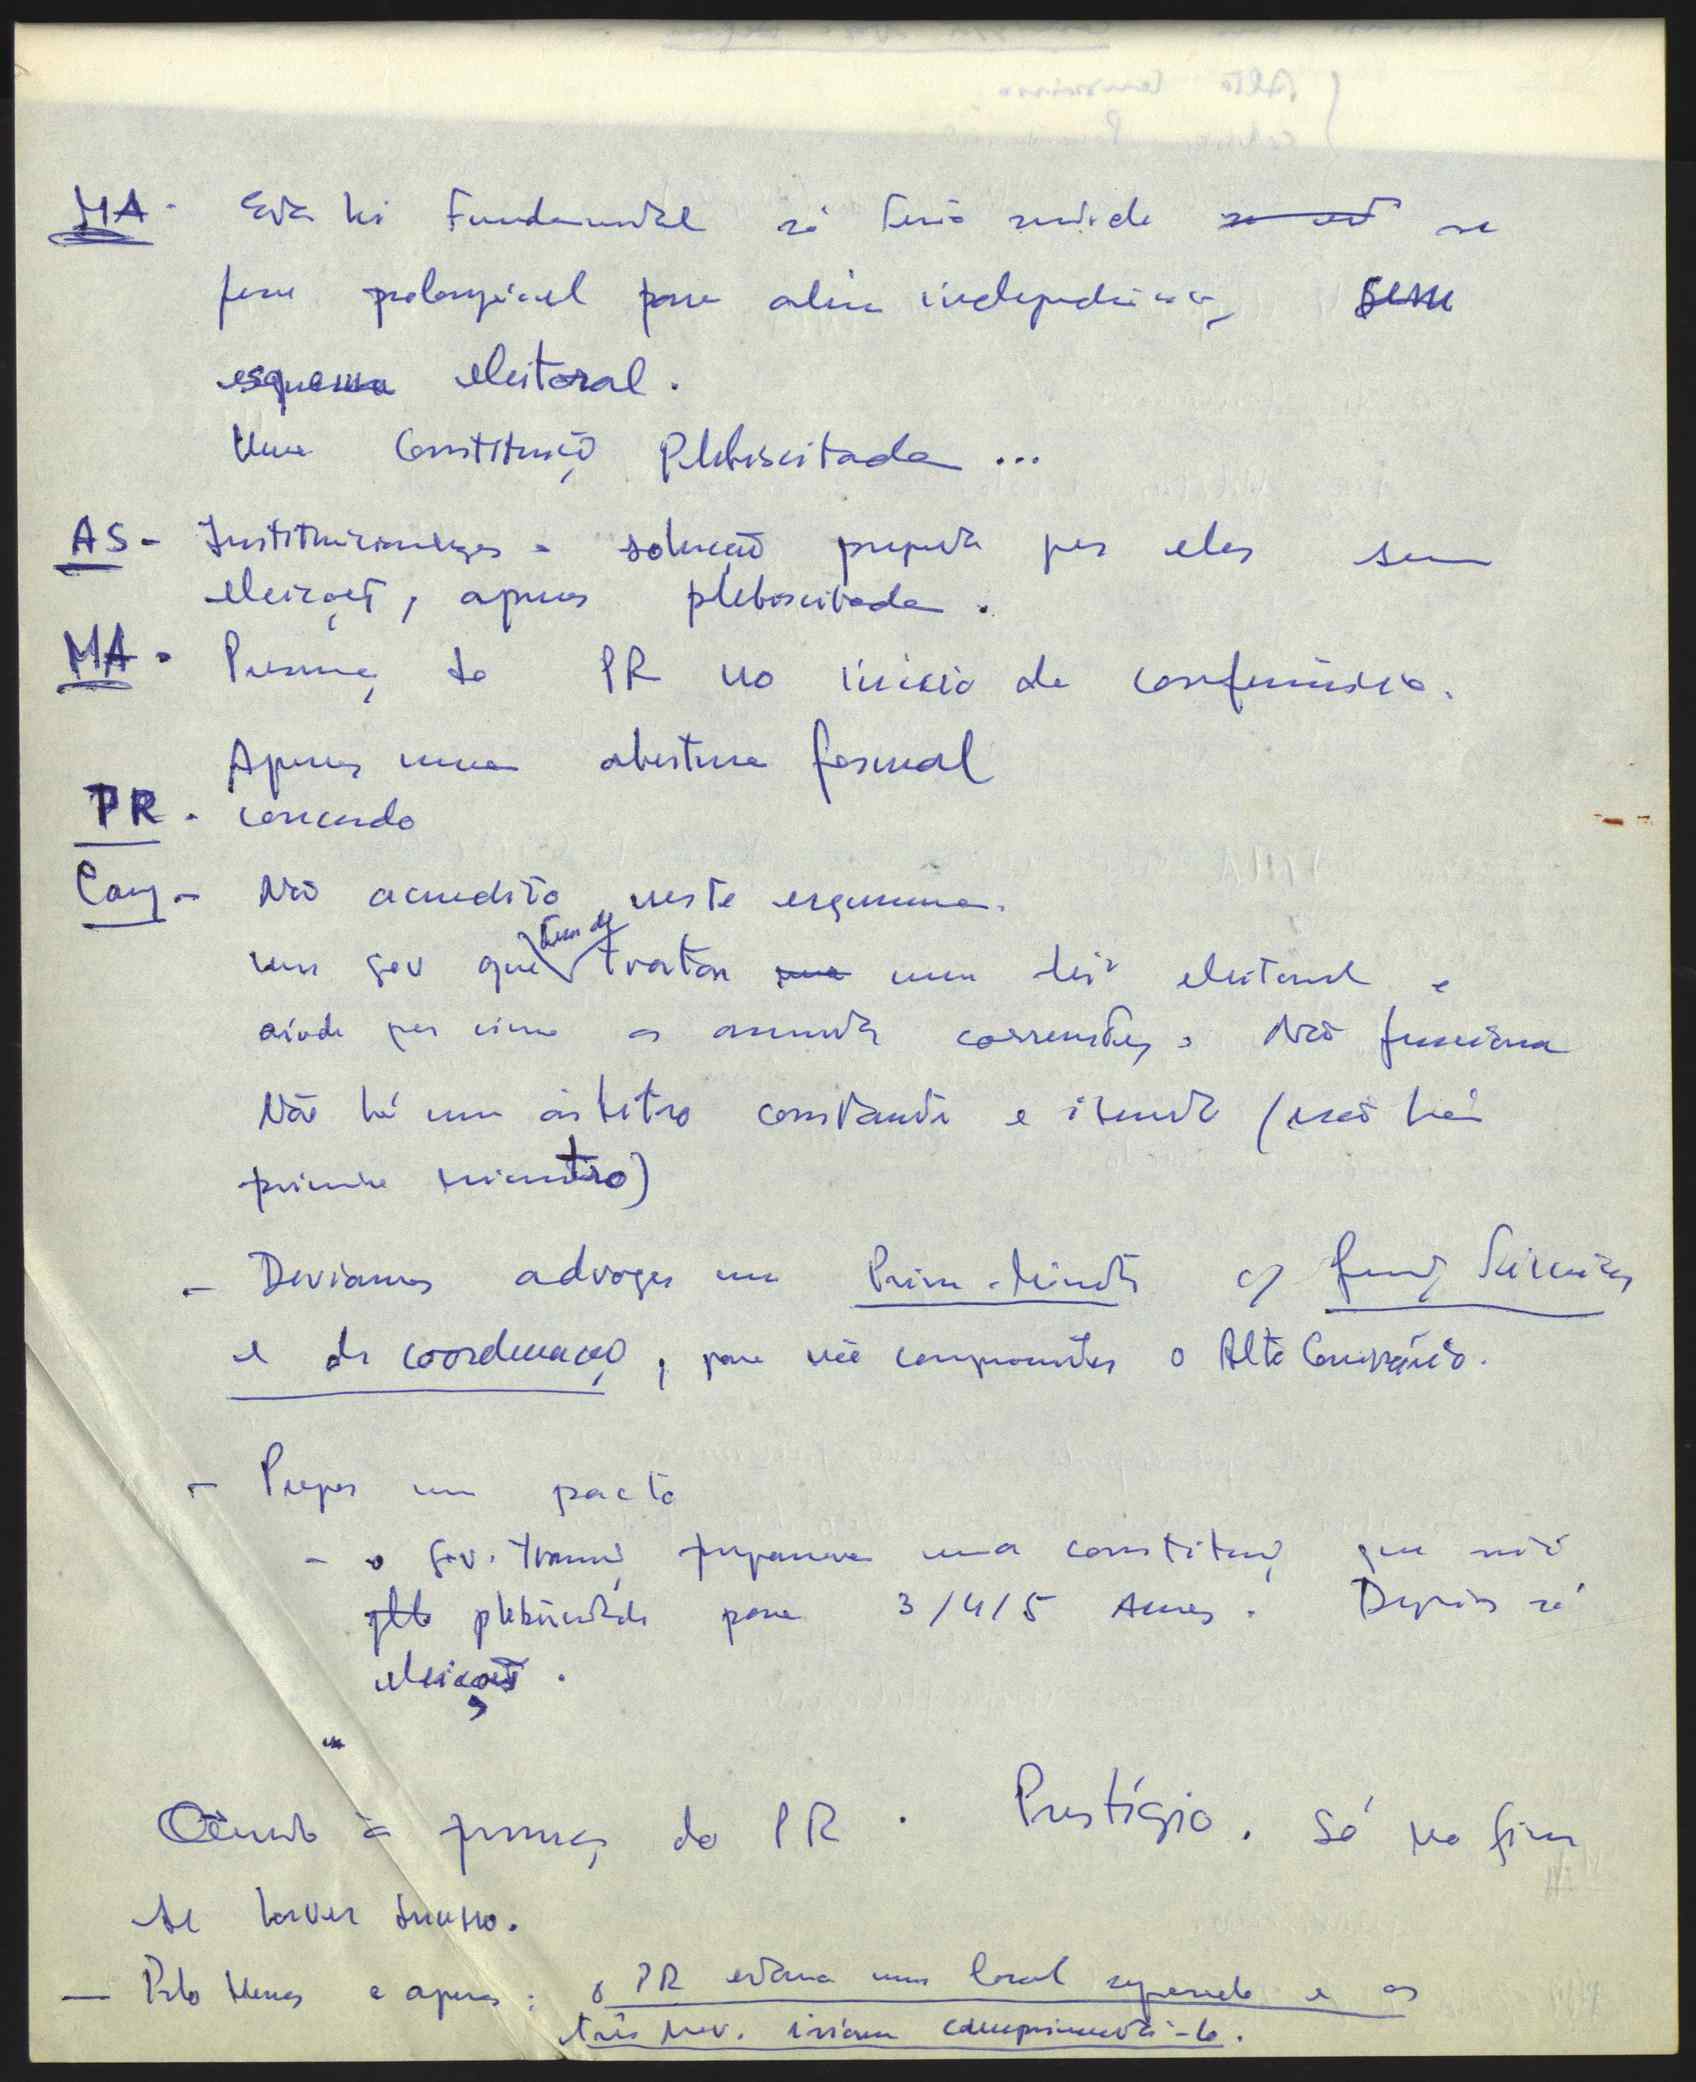 MA - Esta lei Fundamental só terá sentido se
fosse prolongável para além independência, sem
esquema eleitoral.
Uma Constituição Plebiscitada ...
AS - solução proposta por eles sem
eleições, apenas plebiscitada.
MA - Presença do PR no início da conferência.
Apenas uma abertura formal
PR - concordo
Cam - Não acredito neste esquema.
um gov que tem de tratar uma lei eleitoral e
ainda por cima os assuntos correntes. Não funciona
Não há um árbitro constante e isento (não há
primeiro ministro)
- Deviamos advogar um Prim. Ministro c/ funç
e de coordenação, para não comprometer o Alto Comissário.
- Propor um pacto
- o gov. trans. preparava uma constituição que
plebiscitada para 3/4/5 Anos. Depois só
eleições.
Quanto à presença do PR. Prestígio. Só no fim
se houver sucesso.
- Pelo Menos e apenas: o PR estaria num local separado e os
três mov. iriam cumprimentá-lo.